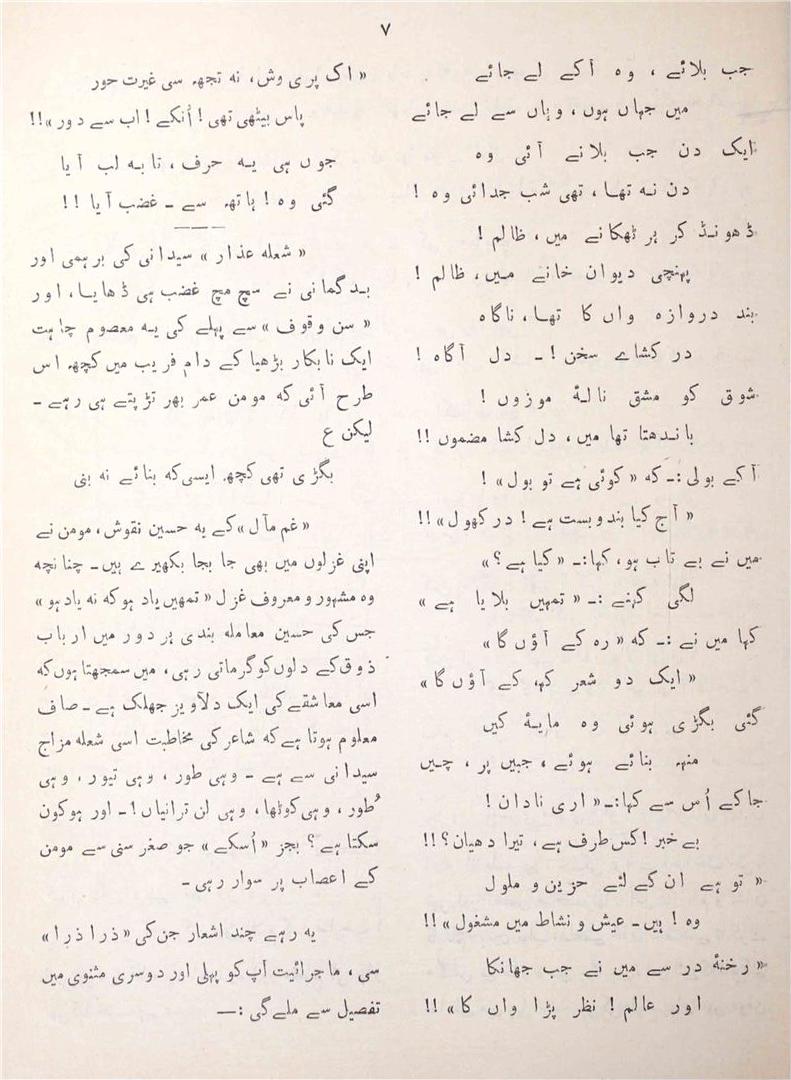 ۷
جب بلائے ، وہ آکے لے جائے
میں جہاں ہوں، وہاں سے لے جائے
ایک دن جب بلانے آئی وہ
دن نہ تھا، تھی شب جدائی وہ !
ڈھونڈ کر ہر ٹھکانے میں، ظالم !
پہنچی دیوان خانے میں، ظالم !
بند دروازہ واں کا تھا، ناگاہ
در کشاے سخن ! ۔ دل آگاہ !
شوق کو مشق نالۂ موزوں !
باندھتا تھا میں، دل کشا مضموں !!
آکے بولی :۔ کہ « کوئی ہے تو بول » !
« آج کیا بندوبست ہے ! در کھول » !!
میں نے بے تاب ہو، کہا :۔ « کیا ہے ؟ »
لگی کہنے :۔ « تمہیں بلایا ہے »
کہا میں نے :۔ کہ « رہ کے آؤں گا »
« ایک دو شعر کہہ کے آؤں گا »
گئی بگڑی ہوئی وہ مایۂ کیں
منہہ بنائے ہوئے ، جبیں پر ، چیں
جاکے اُس سے کہا :۔ « اری نادان !
بے خبر ! کس طرف ہے، تیرا دھیان ؟ !!
« تو ہے ان کے لئے حزین و ملول
وہ ! ہیں ۔ عیش و نشاط میں مشغول » !!
« رخنۂ در سے میں نے جب جھانکا
اور عالم ! نظر پڑا واں کا » !!
« اک پری وش، نہ تجھہ سی غیرت حور
پاس بیٹھی تھی ! اُنکے ! اب سے دور » !!
جوں ہی یہ حرف، تا بہ لب آیا
گئی وہ ! ہاتھہ سے ۔ غضب آیا !!
« شعلہ عذار » سیدانی کی برہمی اور
بدگمانی نے سچ مچ غضب ہی ڈھایا، اور
« سن وقوف » سے پہلے کی یہ معصوم چاہت
ایک نابکار بڑھیا کے دام فریب میں کچھہ اس
طرح آئی کہ مومن عمر بھر تڑپتے ہی رہے ۔
لیکن ع
بگڑی تھی کچھہ ایسی کہ بنائے نہ بنی
« غم مآل » کے یہ حسین نقوش، مومن نے
اپنی غزلوں میں بھی جا بجا بکھیرے ہیں۔ چنانچہ
وہ مشہور و معروف غزل « تمھیں یاد ہو کہ نہ یاد ہو »
جس کی حسین معاملہ بندی ہر دور میں ارباب
ذوق کے دلوں کو گرماتی رہی، میں سمجھتا ہوں کہ
اسی معاشقے کی ایک دلآویز جھلک ہے ۔ صاف
معلوم ہوتا ہے کہ شاعر کی مخاطبت اسی شعلہ مزاج
سیدانی سے ہے ۔ وہی طور، وہی تیور، وہی
طُور، وہی کوٹھا، وہی لن ترانیاں ! ۔ اور ہو کون
سکتا ہے ؟ بجز « اُسکے » جو صغر سنی سے مومن
کے اعصاب پر سوار رہی ۔
یہ رہے چند اشعار جن کی « ذرا ذرا »
سی، ماجرائیت آپ کو پہلی اور دوسری مثنوی میں
تفصیل سے ملے گی :—